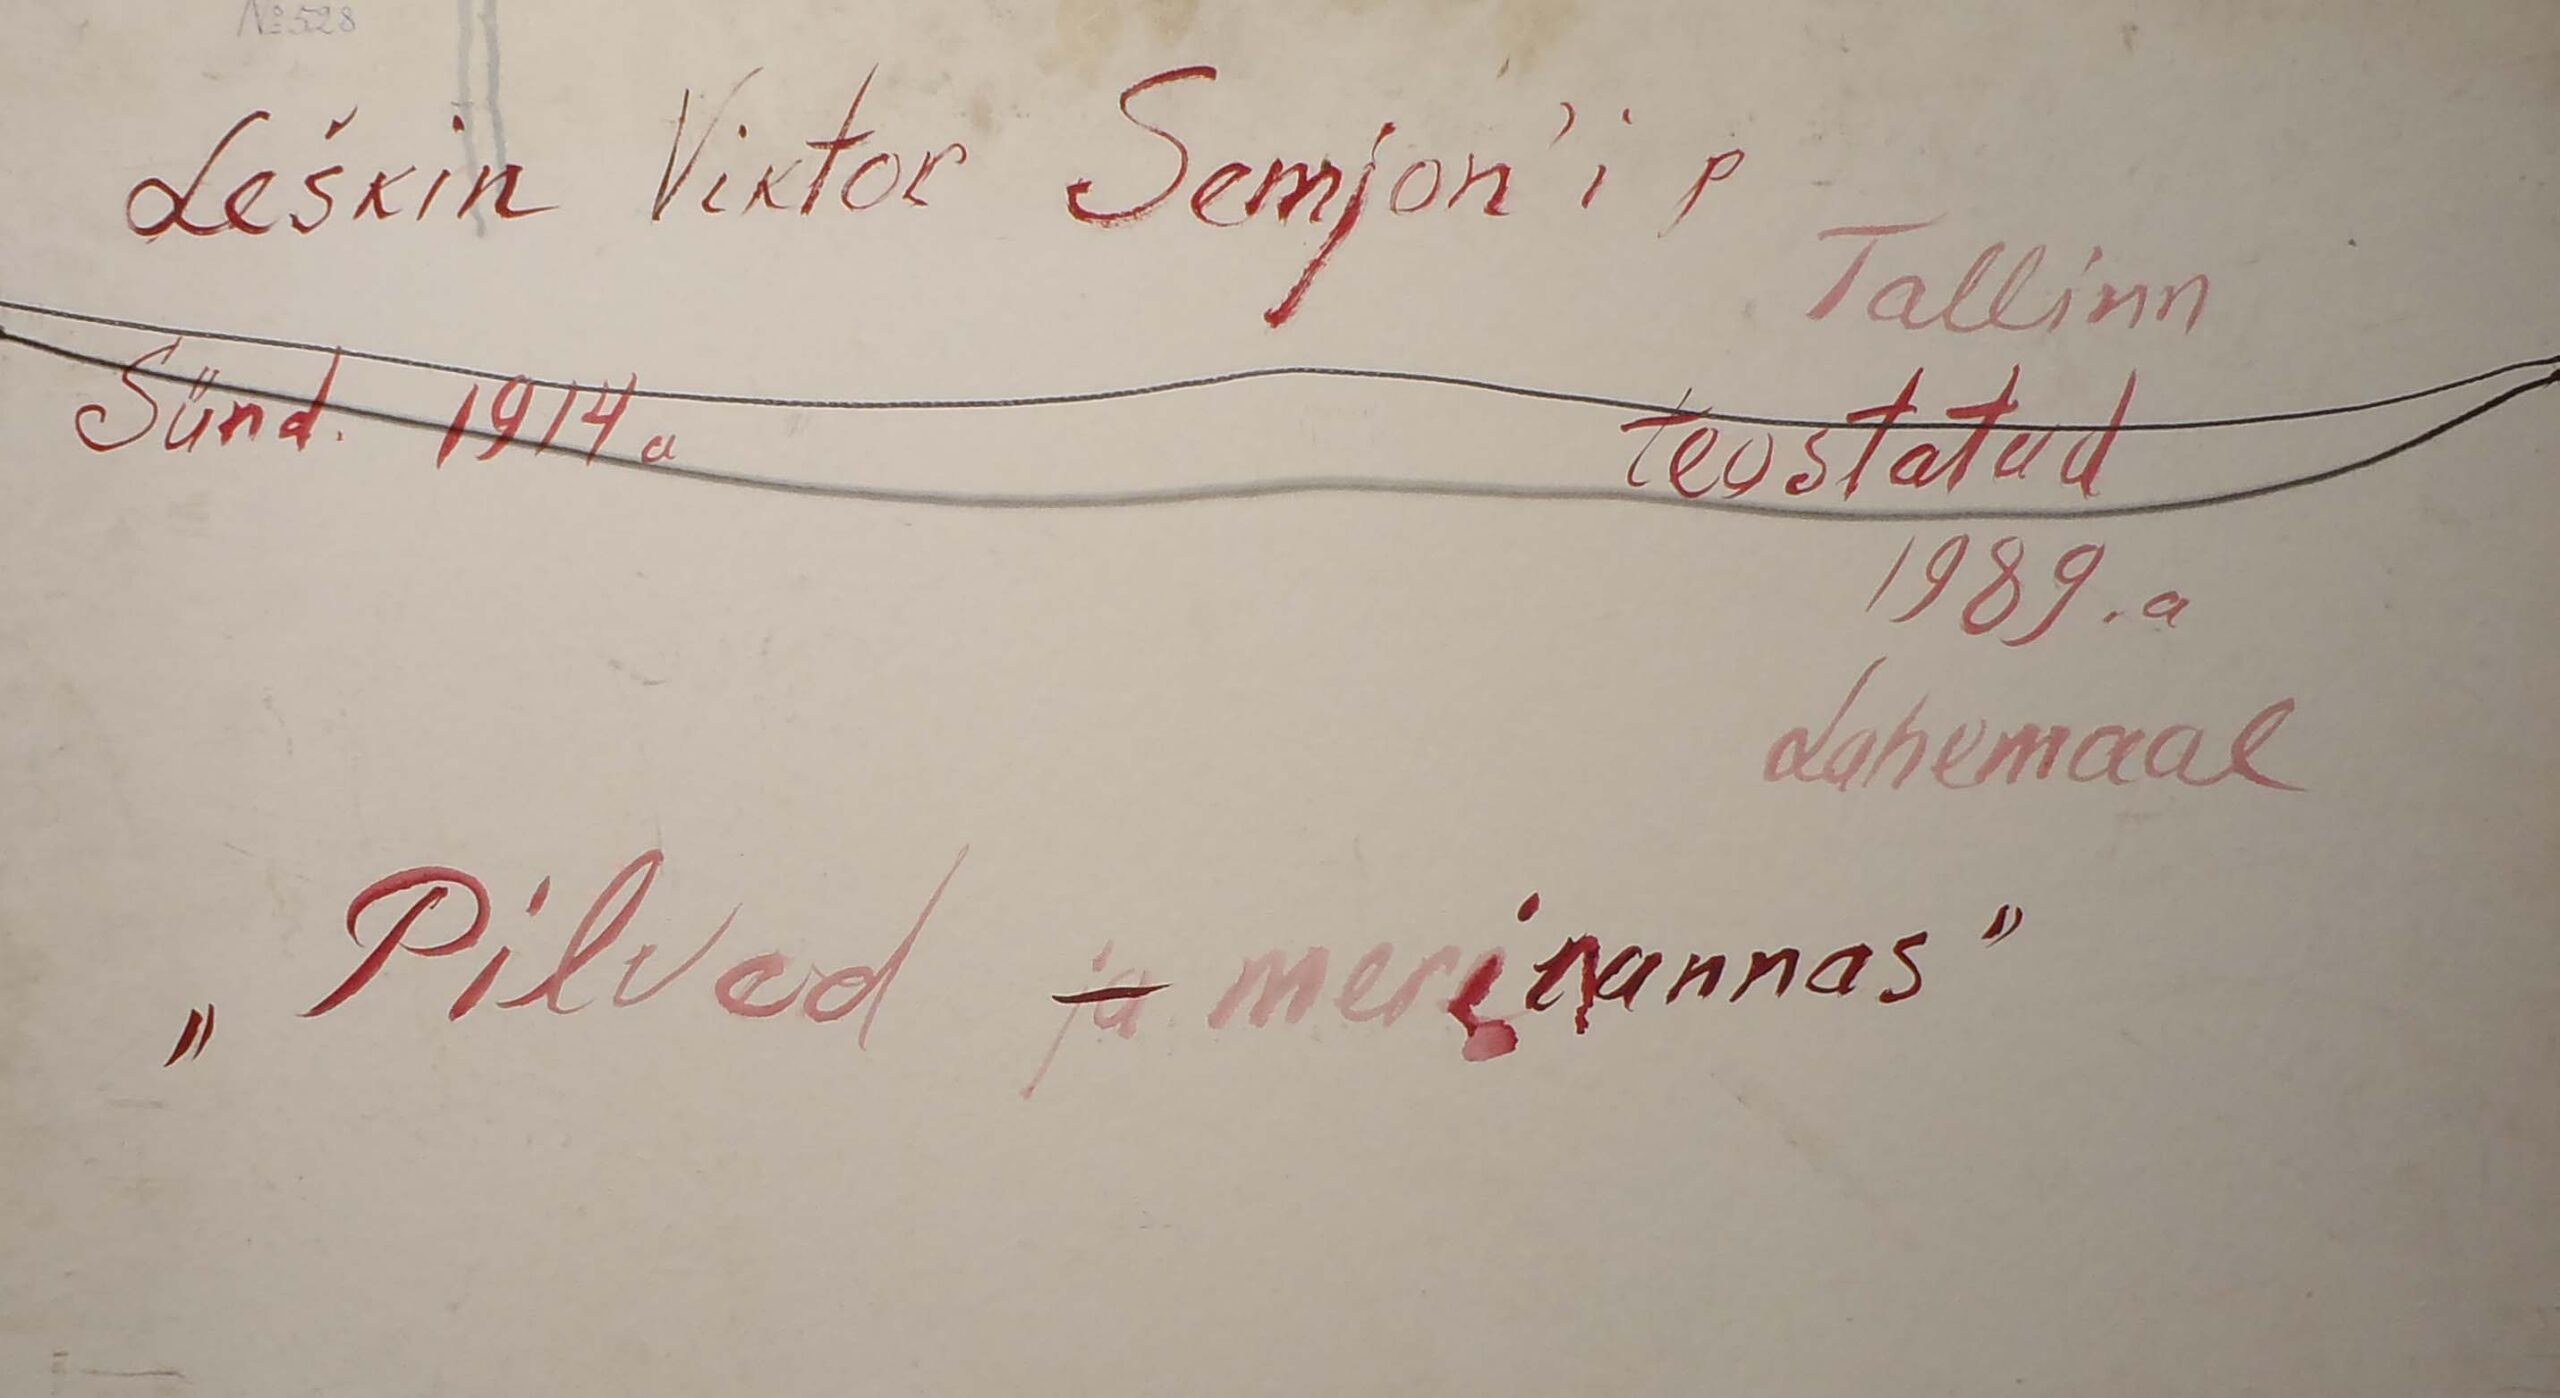 № 528
Leškin Viktor Semjon'i p
Tallinn
Sünd. 1914 a
teostatud
1989.a
Lahemaal
„Pilved mererannas”